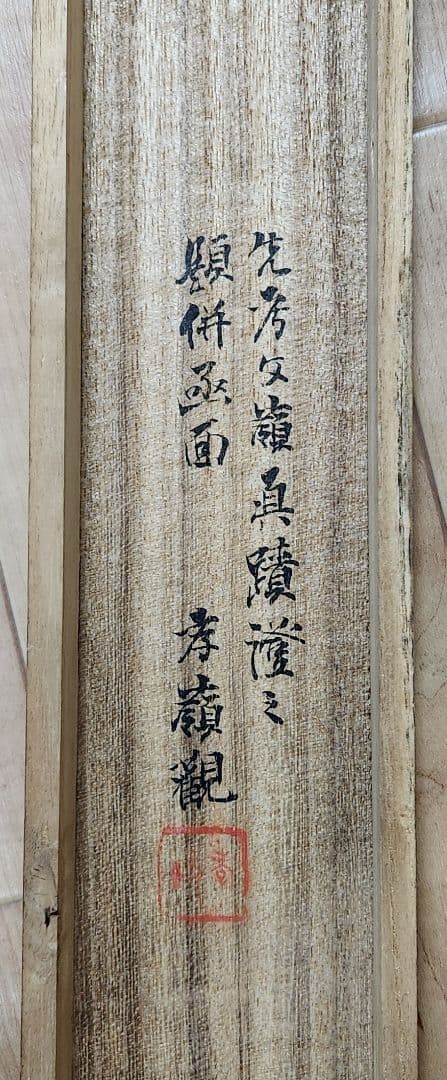 先考文嶺真蹟證之
題併函面 孝嶺觀